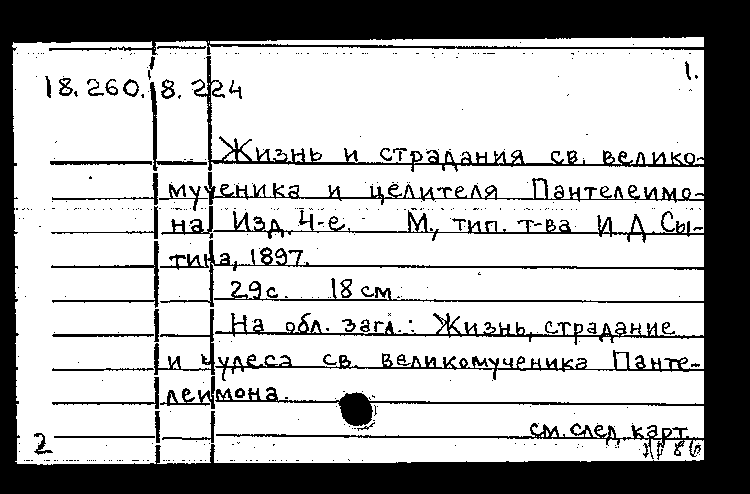 1.
18.260.8.224
Жизнь и страдания св. велико-
мученика и целителя Пантелеимо-
на. Изд. 4-е. М., тип. т-ва И.Д.Сы-
тина, 1897.
29с. 18 см.
На обл. загл.: Жизнь, страдание
и чудеса св. великомученика Панте-
леимона.
см. след. карт.
2